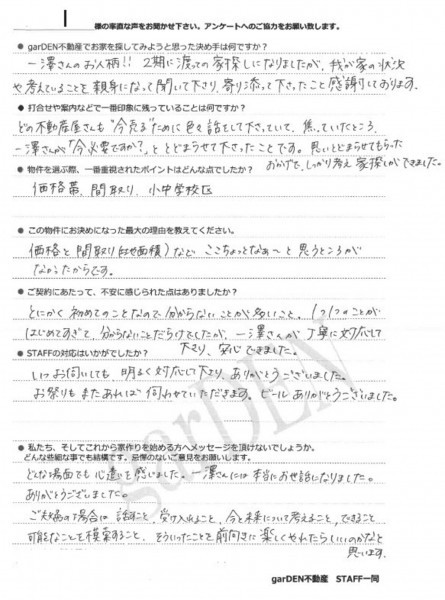 様の率直な声をお聞かせ下さい。アンケートへのご協力をお願い致します。
● garDEN不動産でお家を探してみようと思った決め手は何ですか？
一澤さんのお人柄!! 2期に渡っての家探しになりましたが、我が家の状況
や考えていることを親身になって聞いて下さり、寄り添って下さったこと感謝しております。
● 打合せや案内などで一番印象に残っていることは何ですか？
どの不動産屋さんも"今売る"ために色々話をして下さっていて、焦っていたところ、
一澤さんが「今必要ですか？」ととどまらせて下さったことです。思いとどまらせてもらった
おかげで、しっかり考え家探しができました。
● 物件を選ぶ際、一番重視されたポイントはどんな点でしたか？
価格帯、間取り、小中学校区
● この物件にお決めになった最大の理由を教えてください。
価格と間取り(土地面積)など ここちょっとなぁ〜と思うところが
なかったからです。
● ご契約にあたって、不安に感じられた点はありましたか？
とにかく初めてのことなので分からないことが多いこと。1つ1つのことが
はじめてすぎて、分からないことだらけでしたが、一澤さんが丁寧に対応して
下さり、安心できました。
● STAFFの対応はいかがでしたか？
いつお伺いしても、明るく対応して下さり、ありがとうございました。
お祭りもまたあれば伺わせていただきます。ビールありがとうございました。
● 私たち、そしてこれから家作りを始める方へメッセージを頂けないでしょうか。
どんな些細な事でも結構です。忌憚のないご意見をお願いします。
どんな場面でも心遣いを感じました。一澤さんには本当にお世話になりました。
ありがとうございました。
ご夫婦の場合は 話すこと、受け入れること、今と未来について考えること、できること
可能なことを模索すること、そういったことを前向きに楽しくやれたらいいのかなと
思います。
garDEN不動産 STAFF一同
garDEN